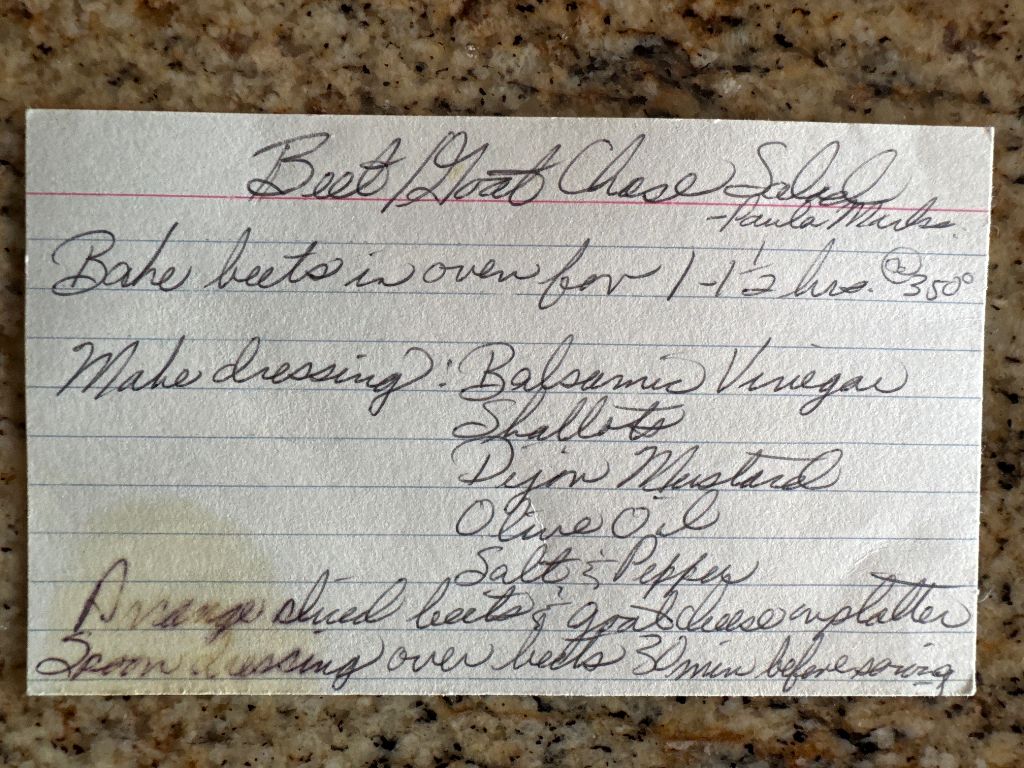 Beet/Goat Chese Salad
- Paula Marks
Bake beets in oven for 1-1 1/2 hrs. @ 350°
Make dressing: Balsamic Vinegar
Shallots
Dijon Mustard
Olive Oil
Salt & Pepper
Arrange sliced beets & goat cheese on platter
Spoon dressing over beets 30 min before serving